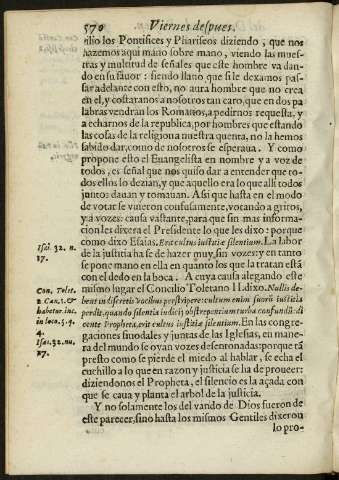 570
Viernes despues.
cilio los Pontifices y Phariseos diziendo, que nos
hazemos aqui mano sobre mano, viendo las mues-
tras y multitud de señales que este hombre va dan-
do en su fauor: siendo llano que si le dexamos pas-
sar adelante con esto, no aura hombre que no crea
en el, y costaranos a nosotros tan caro, que en dos pa
labras vendran los Romanos, a pedirnos requesta, y
a echarnos de la republica, por hombres que estando
las cosas de la religion a nuestra quenta, no la hemos
sabido dar, como de nosotros se esperaua. Y como
propone esto el Euangelista en nombre y a voz de
todos, es señal que nos quiso dar a entender que to-
dos ellos lo dezian, y que aquello era lo que alli todos
juntos dauan y tomauan. Assi que hasta en el modo
de votar se vuieron confusamente, votando a gritos,
y a vozes: causa vastante, para que sin mas informa-
cion les dixera el Presidente lo que les dixo: porque
como dixo Esaias, Erit cultus iustitiæ silentium. La labor
de la justicia ha se de hazer muy, sin vozes: y en tanto
se pone mano en ella en quanto los que la tratan està
con el dedo en la boca. A cuya causa alegando este
mismo lugar el Concilio Toletano II. dixo. Nullis de-
bent indiscretis vocibus perstrepere: cultum enim suum iustitia
perdit, quando silentia iudicij obstrepentium turba confundũ: di
cente Propheta, erit cultus iustitiæ silentium. En las congre-
gaciones sinodales y juntas de las Iglesias, en mane-
ra del mundo se oyan vozes desentonadas: porque tã
presto como se pierde el miedo al hablar, se echa el
cuchillo a lo que en razon y justicia se ha de proueer:
diziendonos el Propheta, el silencio es la açada con
que se caua y planta el arbol de la justicia.
Y no solamente los del vando de Dios fueron de
este parecer, sino hasta los mismos Gentiles dixerou
lo pro-
Isai. 32. n.
17.
Con. Tolet.
2 Can. 1. &
habetur. inc.
in loco. 5. 4.
4.
Isai. 32. nu.
17.